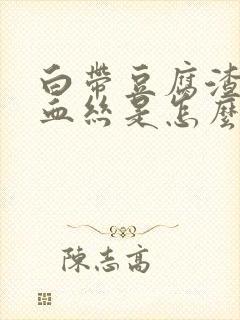 白帶豆腐渣
血絲是怎麼
陳志高